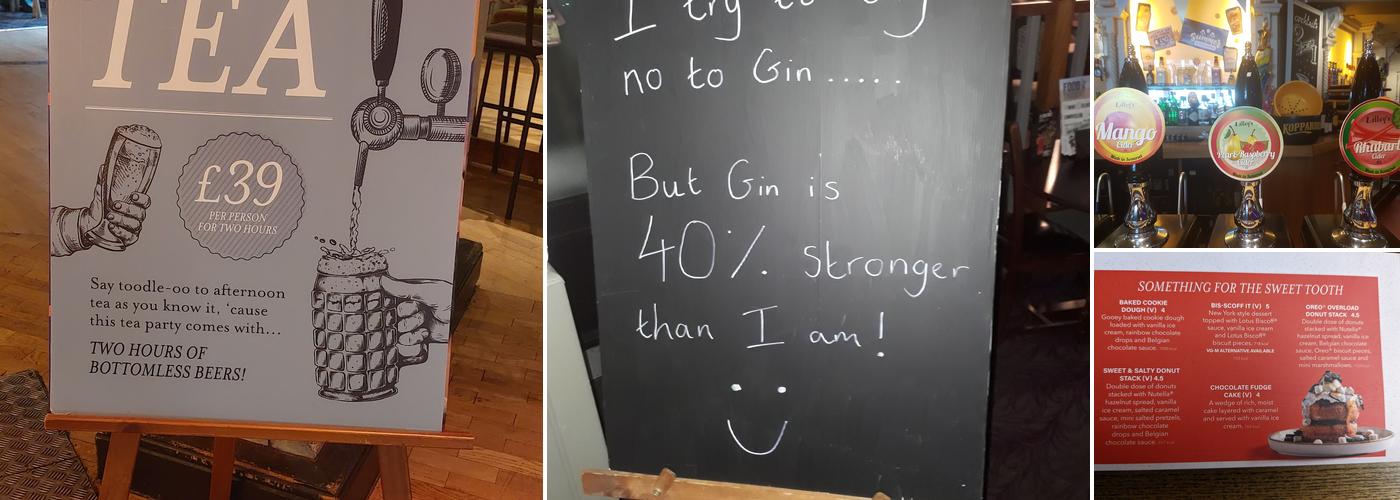 TEA
£39
PER PERSON
FOR TWO HOURS
Say toodle-oo to afternoon
tea as you know it, ‘cause
this tea party comes with...
TWO HOURS OF
BOTTOMLESS BEERS!
I try to
no to Gin .....
But Gin is
40% stronger
than I am!
Lilley's
Mango
Cider
Lilley's
Pear & Raspberry
Cider
Lilley's
Rhubarb
Cider
KOPPARBERG
SOMETHING FOR THE SWEET TOOTH
BAKED COOKIE
DOUGH (V) 4
Gooey baked cookie dough
loaded with vanilla ice
cream, rainbow chocolate
drops and Belgian
chocolate sauce.
SWEET & SALTY DONUT
STACK (V) 4.5
Double dose of donuts
stacked with Nutella®
hazelnut spread, vanilla
ice cream, salted caramel
sauce, mini salted pretzels,
rainbow chocolate
drops and Belgian
chocolate sauce.
BIS-SCOFF IT (V) 5
New York-style dessert
topped with Lotus Biscoff®
sauce, vanilla ice cream
and Lotus Biscoff®
biscuit pieces.
VG-M ALTERNATIVE AVAILABLE
CHOCOLATE FUDGE
CAKE (V) 4
A wedge of rich, moist
cake layered with caramel
and served with vanilla ice
cream.
OREO® OVERLOAD
DONUT STACK 4.5
Double dose of donuts
stacked with Nutella®
hazelnut spread, vanilla ice
cream, Belgian chocolate
sauce, Oreo® biscuit pieces,
salted caramel sauce and
mini marshmallows.